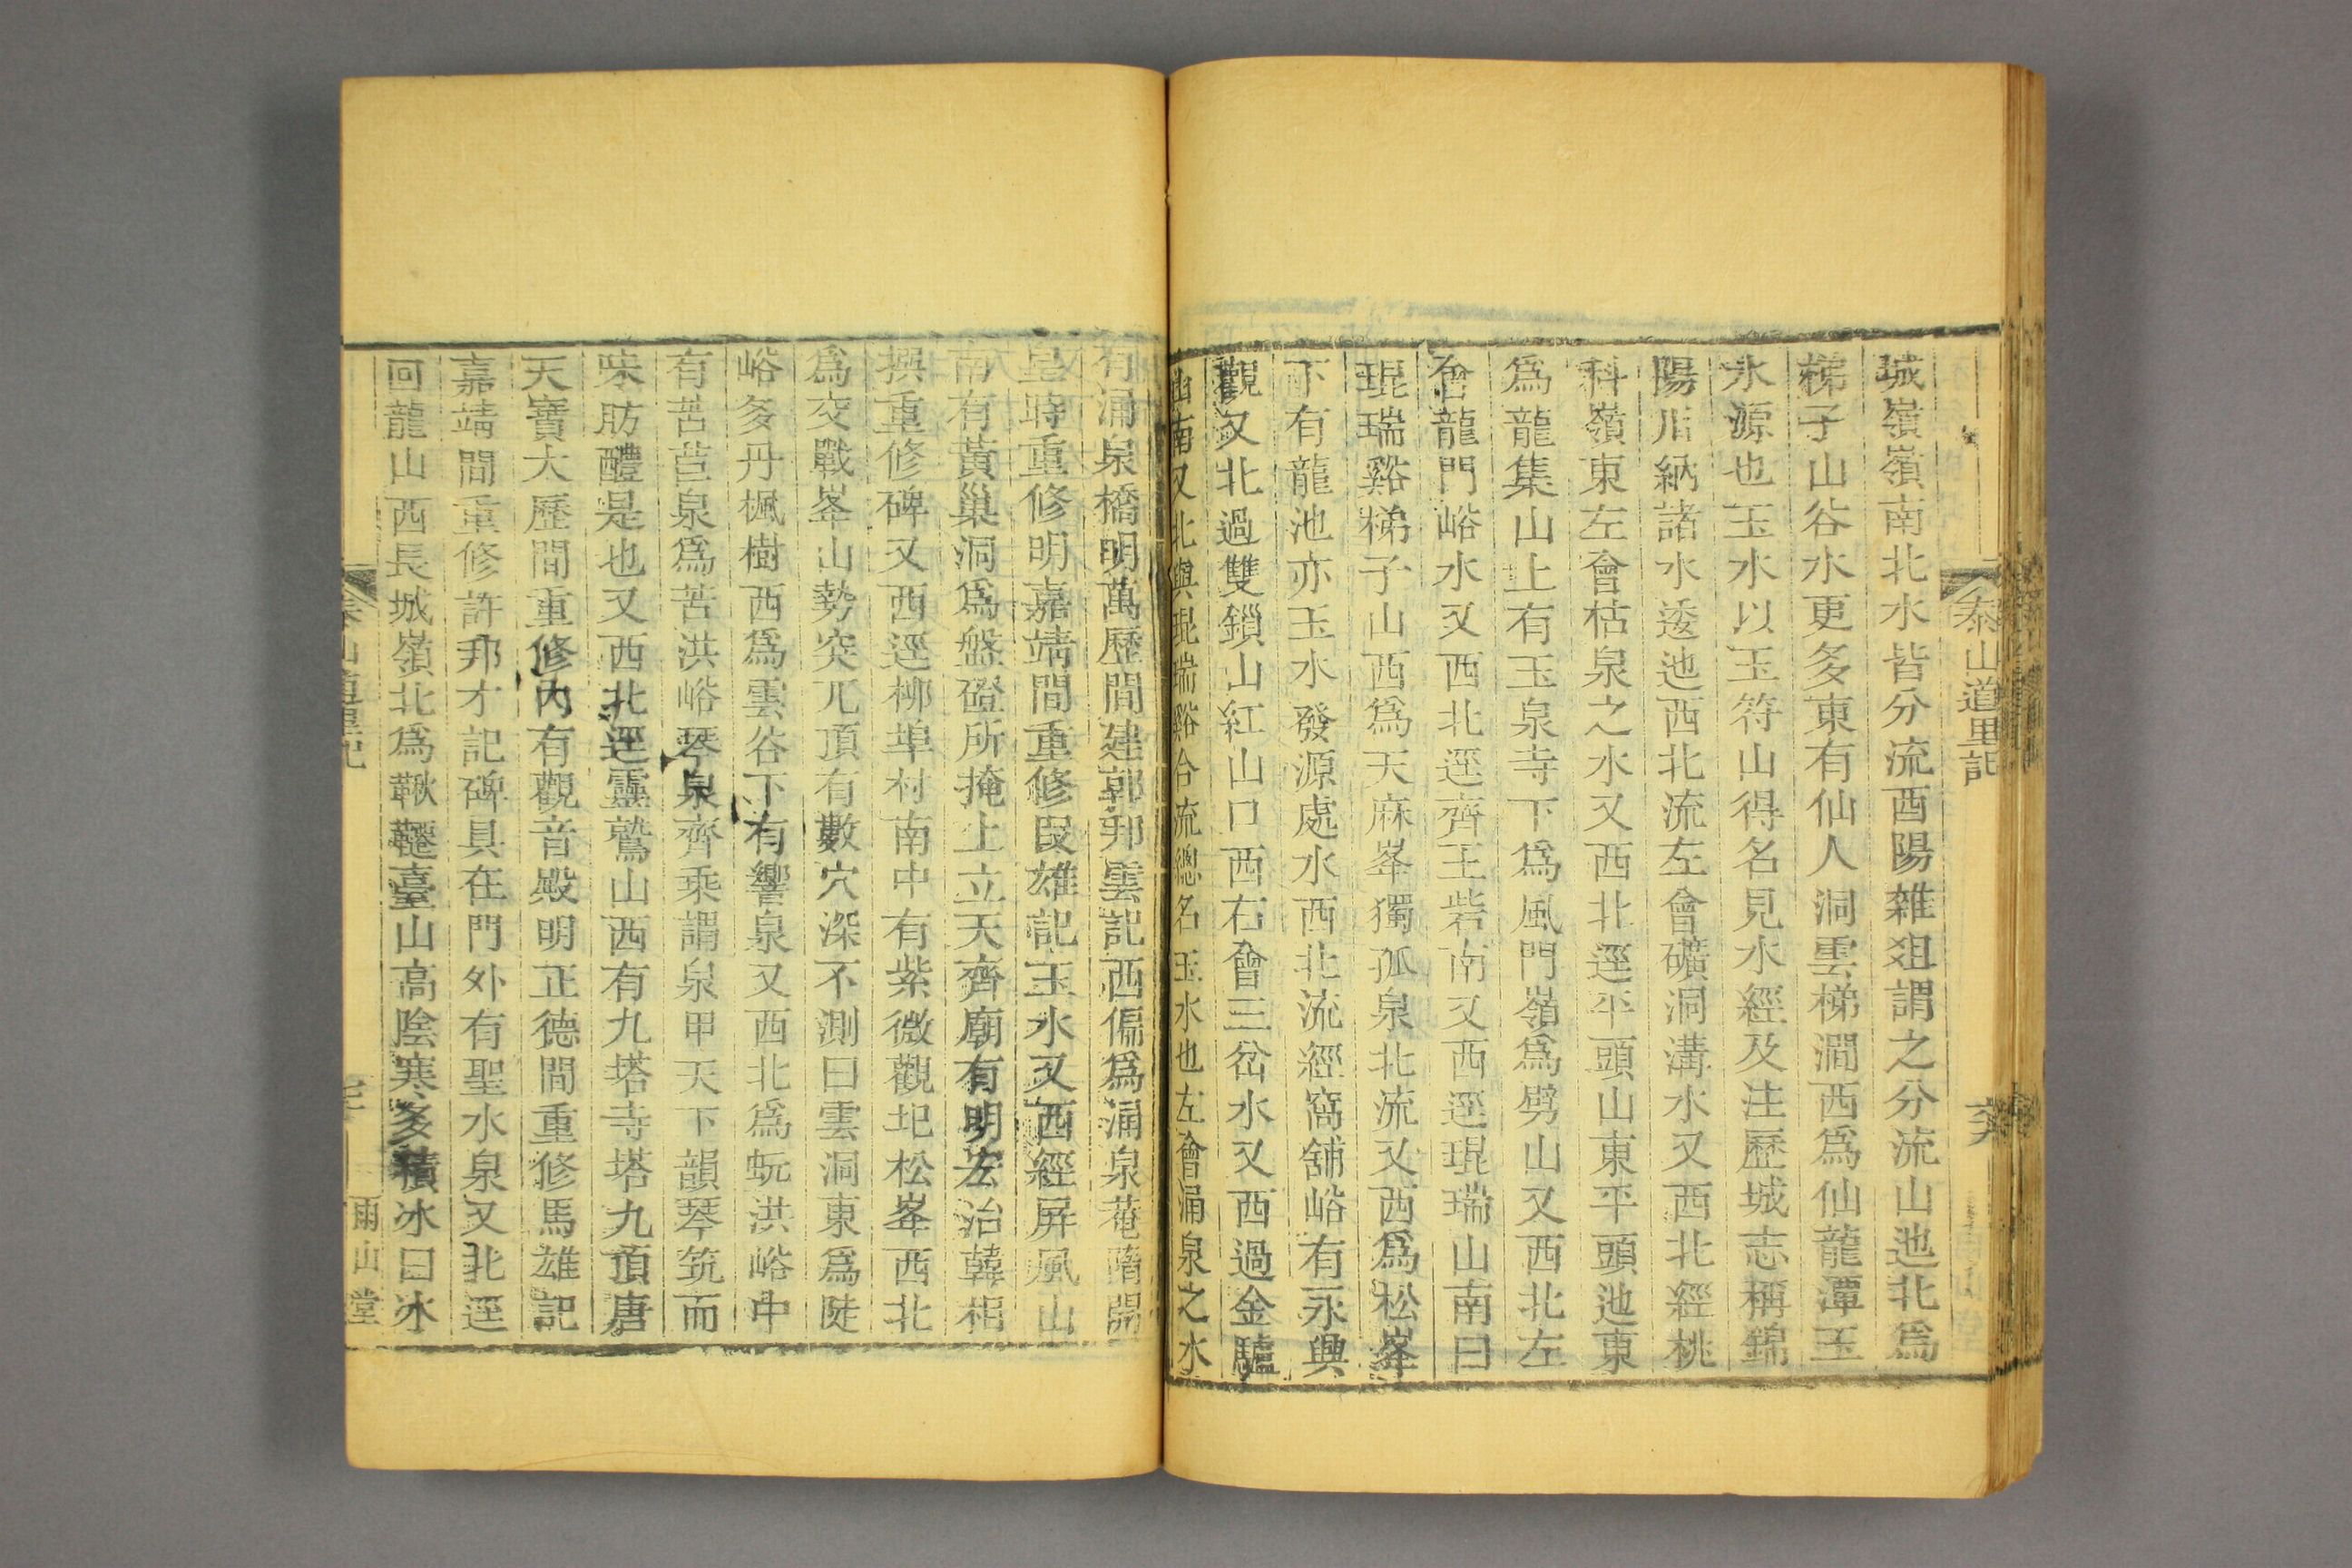 泰山道里記
城嶺嶺南北水皆分流酉陽雜俎謂之分流山迆北爲
梯子山谷水更多東有仙人洞雲梯澗西爲仙龍潭玉
水源也玉水以玉符山得名見水經及注歷城志稱錦
陽川納諸水逶迆西北流左會礦洞溝水又西北經桃
科嶺東左會枯泉之水又西北逕平頭山東平頭迆東
爲龍集山上有玉泉寺下爲風門嶺爲劈山又西北左
會龍門峪水又西北逕齊王砦南又西逕琨瑞山南曰
琨瑞谿梯子山西爲天麻峯獨孤泉北流又西爲松峯
下有龍池亦玉水發源處水西北流經窩舖峪有永興
觀又北過雙鎖山紅山口西右會三岔水又西過金驢
山南又北與琨瑞谿合流總名玉水也左會涌泉之水
有涌泉橋明萬歷間建郭邦雲記西偪爲涌泉菴隋開
皇時重修明嘉靖間重修段雄記玉水又西經屏風山
南有黃巢洞爲盤磴所掩上立天齊廟有明左治韓相
撰重修碑又西逕柳埠村南中有紫微觀圯松峯西北
爲交戰峯山勢突兀頂有數穴深不測曰雲洞東爲陡
峪多丹楓樹西爲雲谷下有響泉又西北爲蚖洪峪中
有苦苣泉爲苦洪峪琴泉齊乘謂泉甲天下韻琴筑而
味肪醴是也又西北逕靈鷲山西有九塔寺塔九頂唐
天寶大歷間重修內有觀音殿明正德間重修馬雄記
嘉靖間重修許邦才記碑具在門外有聖水泉又北逕
回龍山西長城嶺北爲鞦韆臺山高陰寒多積冰曰冰
泰山道里記
雨山堂